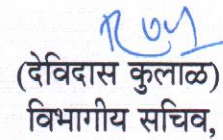 (देविदास कुलाळ)
विभागीय सचिव,